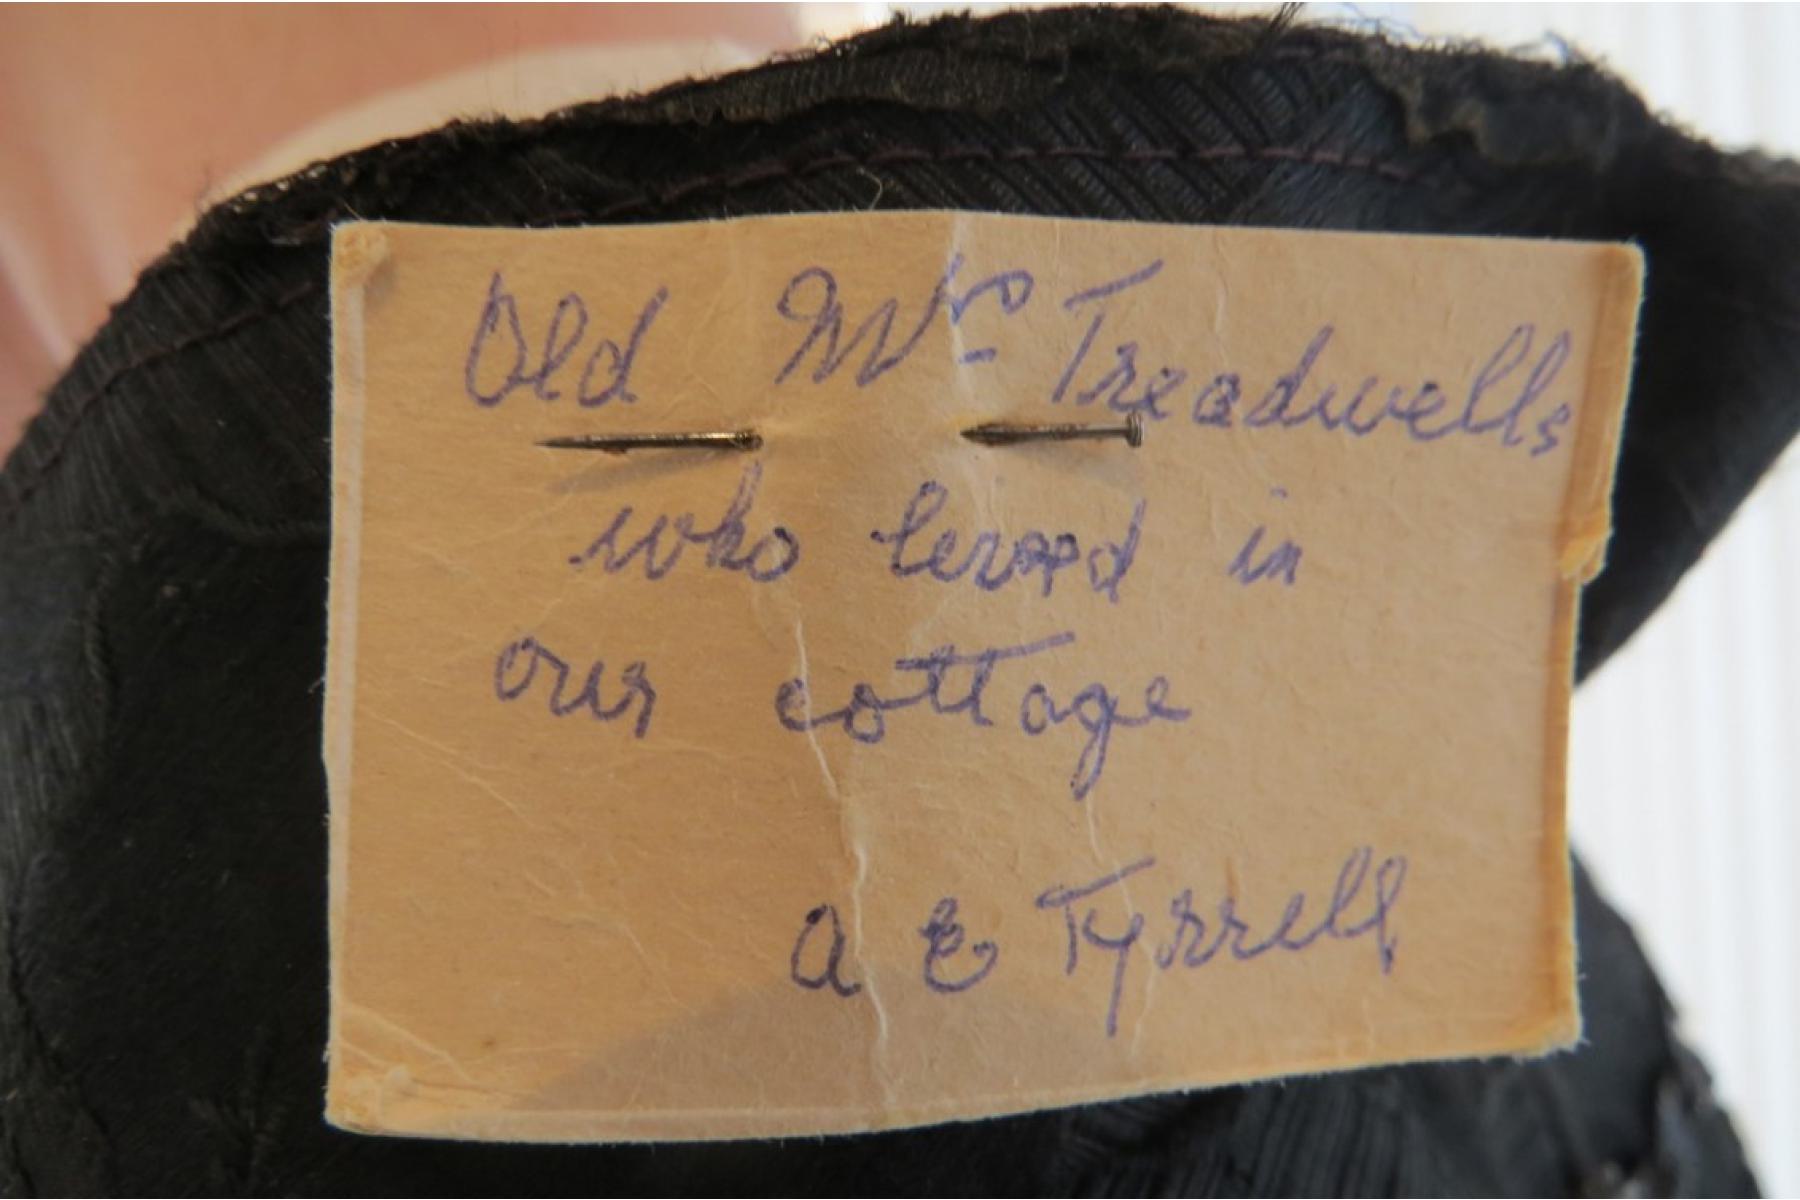 Old Mrs Treadwells
who lived in
our cottage
A E Tyrrell